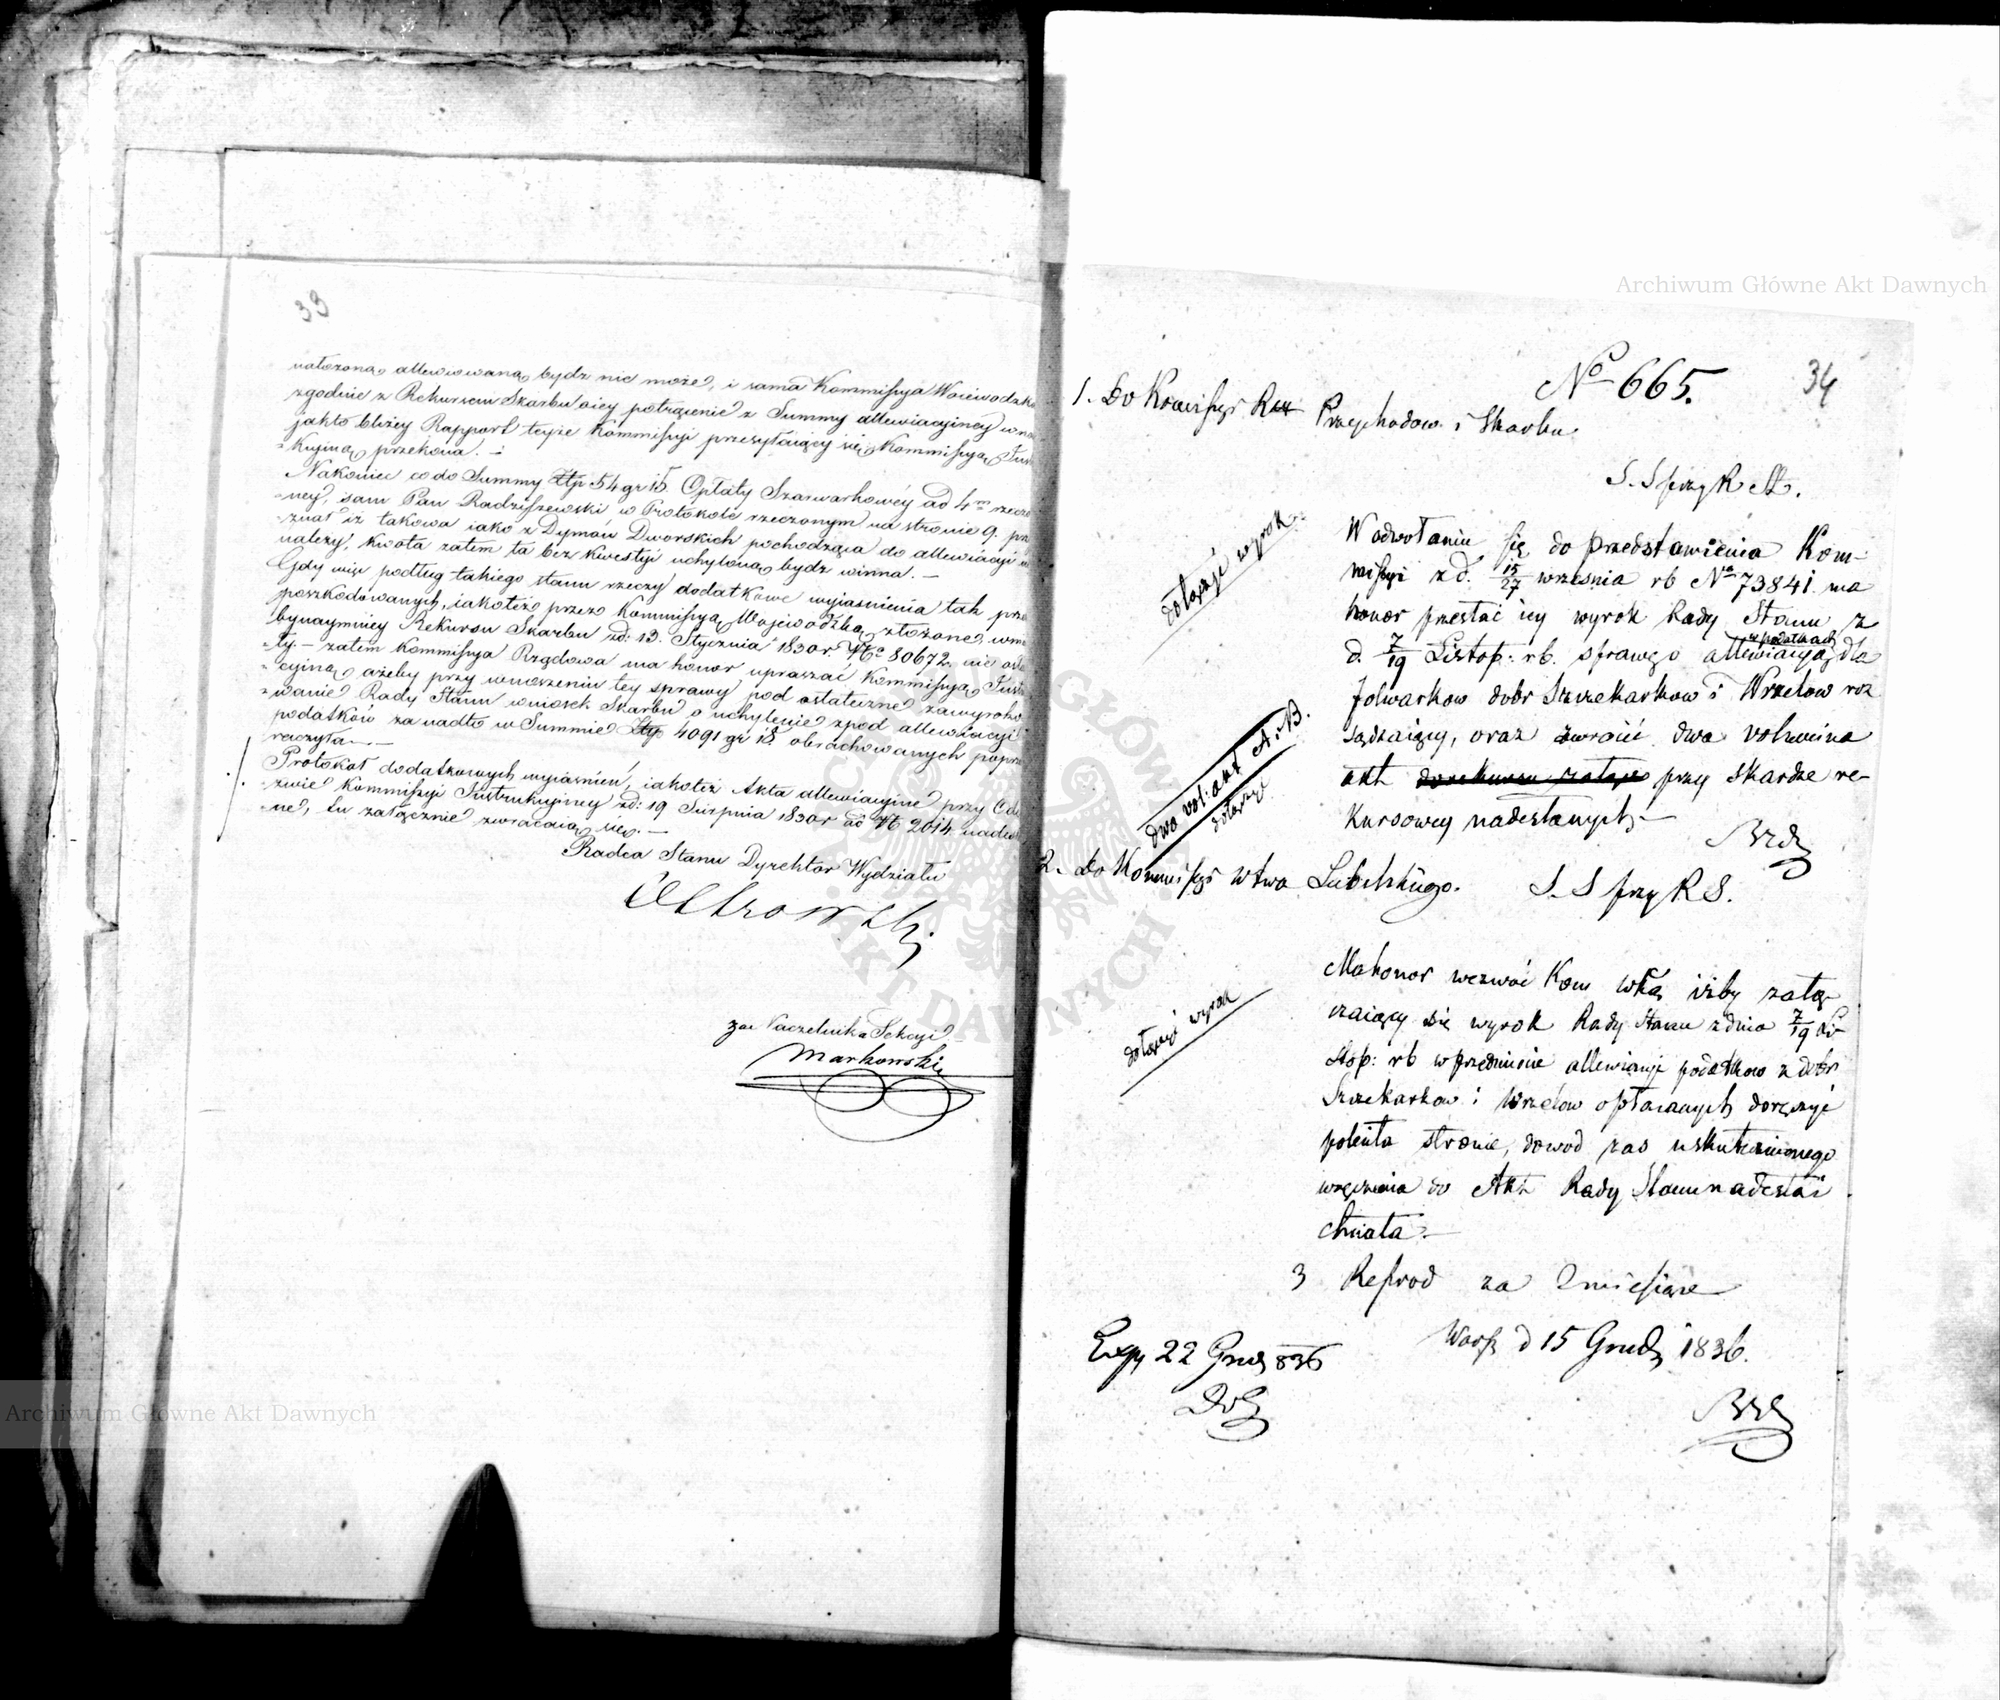 33
nałożoną allewiowaną bydź nie może, i sama Kommissya Wojewodzka
zgodnie z Rekursem Skarbu
potrącenie z Summy allewiacyiney
jak to bliżey Rapport teyże Kommissyi przesyłaiący się Kommissyą
przekona. –
Nakoniec co do Summy Złp 54 gr 15. Opłaty Szarwarkowéy ad 4m
ney, sam Pan Radziszewski w Protokole rzeczonym na stronie 9.
znał iż takowa iako z Dymów Dworskich pochodząca do allewiacyi
należy, kwota zatem ta bez kwestyi uchyloną bydź winna. –
Gdy więc podług takiego stanu rzeczy dodatkowe wyiaśnienia tak
poszkodowanych, iakoteż przez Kommissyą Wojewodzką złożone
bynaymniey Rekursu Skarbu zd: 13. Stycznia 1830 r. No 80672. nie
ty. – zatem Kommissya Rządowa ma honor upraszać Kommissyą
cyiną, ażeby przy wnoszeniu tey sprawy pod ostateczne zawyroko
wanie Rady Stanu wniosek Skarbu o uchylenie z pod allewiacyi
podatków za nadto w Summie Złp 4091 gr 18. obrachowanych
raczyła. –
Protokoł dodatkowych wyiaśnień, iakoteż Akta allewiacyine przy
zwie Kommissyi Instrukcyiney zd: 19 Sierpnia 1830 r ad No 2014
ne, tu załącznie zwracaią się. –
Radca Stanu Dyrektor Wydziału
za Naczelnika Sekcyi
Markowski
No 665.
34
1. Do Kommissyi Przychodow i Skarbu
S. S przy R St.
dołączyć wyrok
W odwołaniu się do przedstawienia Kom-
missyi z d. 15/27 września rb No 73841. ma
honor przesłać iey wyrok Rady Stanu z
d. 7/19 Listop: rb. sprawę o allewiacyą w podatkach dla
folwarkow dobr Szczekarkow i Wrzelow roz
sądzaiący, oraz zwrócić dwa volumina
akt przy skardze re-
kursowey nadesłanych. –
dwa vol: akt A. B.
dołączyć
2. Do Kommissyi Wtwa Lubelskiego.
S. S przy R S.
dołączyć wyrok
Ma honor wezwać Kom Wką iżby załą-
czaiący się wyrok Rady Stanu z dnia 7/19 Li
stop: rb w przedmiocie allewiacyi podatkow z dobr
Szczekarkow i Wrzelow opłacanych doręczyć
poleciła stronie, dowod zaś uskutecznionego
wręczenia do Akt Rady Stanu nadesłać
chciała. –
3 Reprod za 2 miesiące
Warsz d 15 Grud 1836.
Exp 22 Grud 836